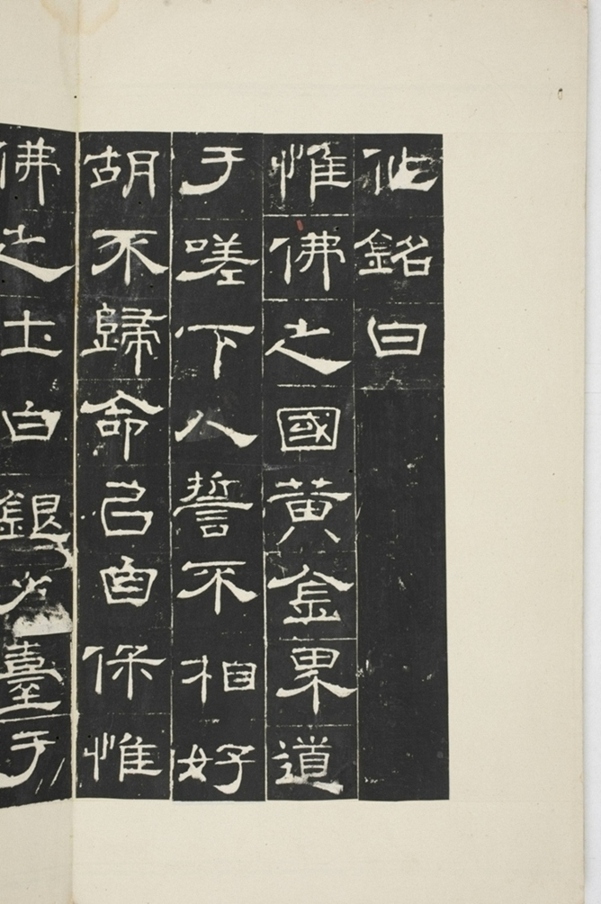 銘曰
惟佛之國黃金界道
于嗟下人誓不相好
胡不歸命㠯自保惟
佛之土白銀臺于